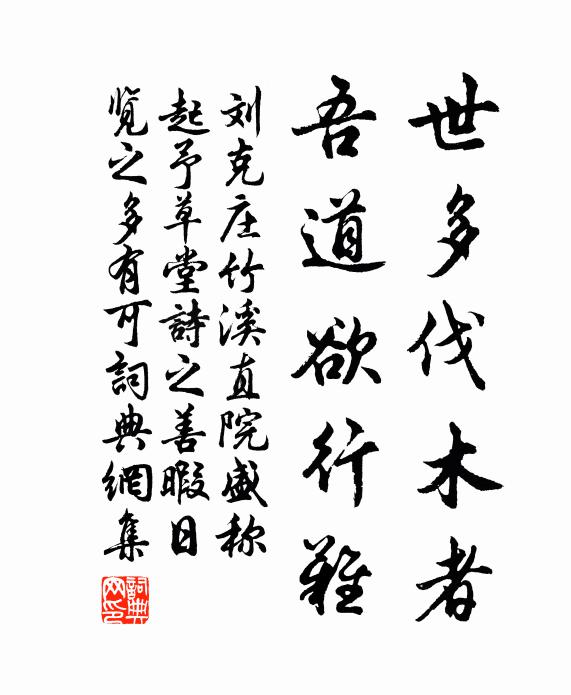 世多伐木者
吾道欲行难
刘克庄竹溪直院盛称
起予草堂詩之善暇日
览之多有可詞典網集
詞典
网印